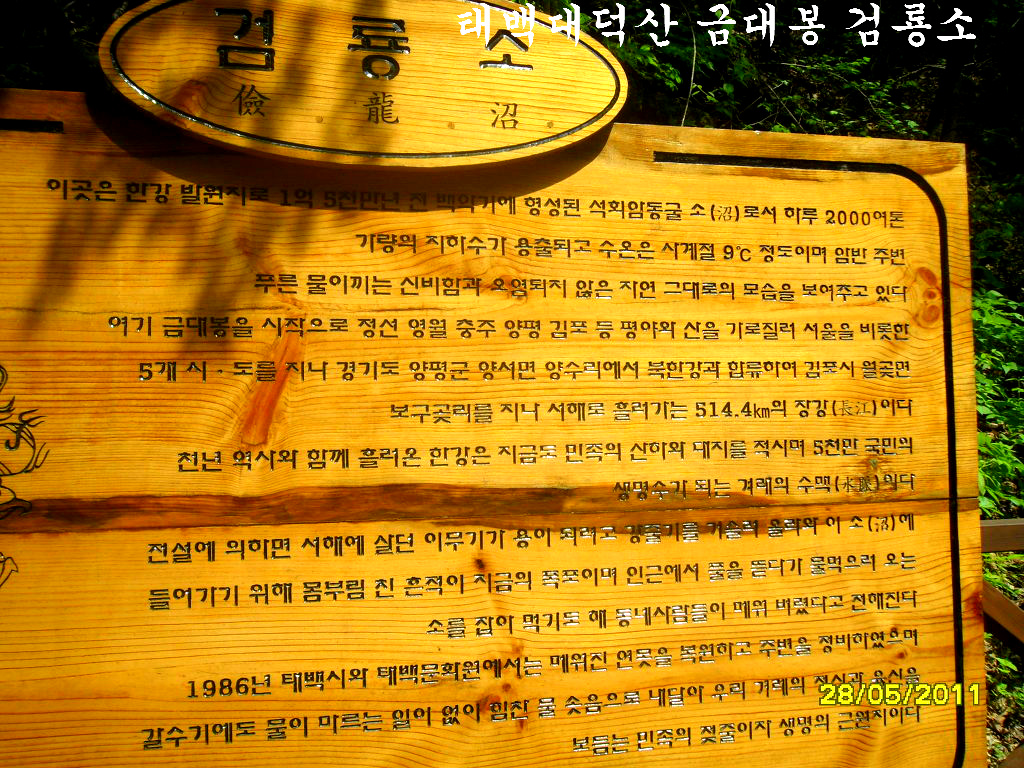 태백대덕산 금대봉 검룡소
검룡소
儉龍沼
이곳은 한강 발원지로 1억 5천만년 전 백악기에 형성된 석회암동굴 소(沼)로서 하루 2000여톤
가량의 지하수가 용출되고 수온은 사계절 9℃ 정도이며 암반 주변
푸른 물이끼는 신비함과 오염되지 않은 자연 그대로의 모습을 보여주고 있다
여기 금대봉을 시작으로 정선 영월 충주 양평 김포 등 평야와 산을 가로질러 서울을 비롯한
5개 시·도를 지나 경기도 양평군 양서면 양수리에서 북한강과 합류하여 김포시 월곶면
보구곶리를 지나 서해로 흘러가는 514.4㎞의 장강(長江)이다
천년 역사와 함께 흘러온 한강은 지금도 민족의 산하와 대지를 적시며 5천만 국민의
생명수가 되는 겨레의 수맥(水脈)이다
전설에 의하면 서해에 살던 이무기가 용이 되려고 강줄기를 거슬러 올라와 이 소(沼)에
들어가기 위해 몸부림 친 흔적이 지금의 폭포이며 인근에서 풀을 뜯다가 물먹으러 오는
소를 잡아 먹기도 해 동네사람들이 메워 버렸다고 전해진다
1986년 태백시와 태백문화원에서는 메워진 연못을 복원하고 주변을 정비하였으며
갈수기에도 물이 마르는 일이 없이 힘찬 물 솟음으로 내달아 우리 겨레의 정신과 육신을
보듬는 민족의 젖줄이자 생명의 근원지이다
28/05/2011